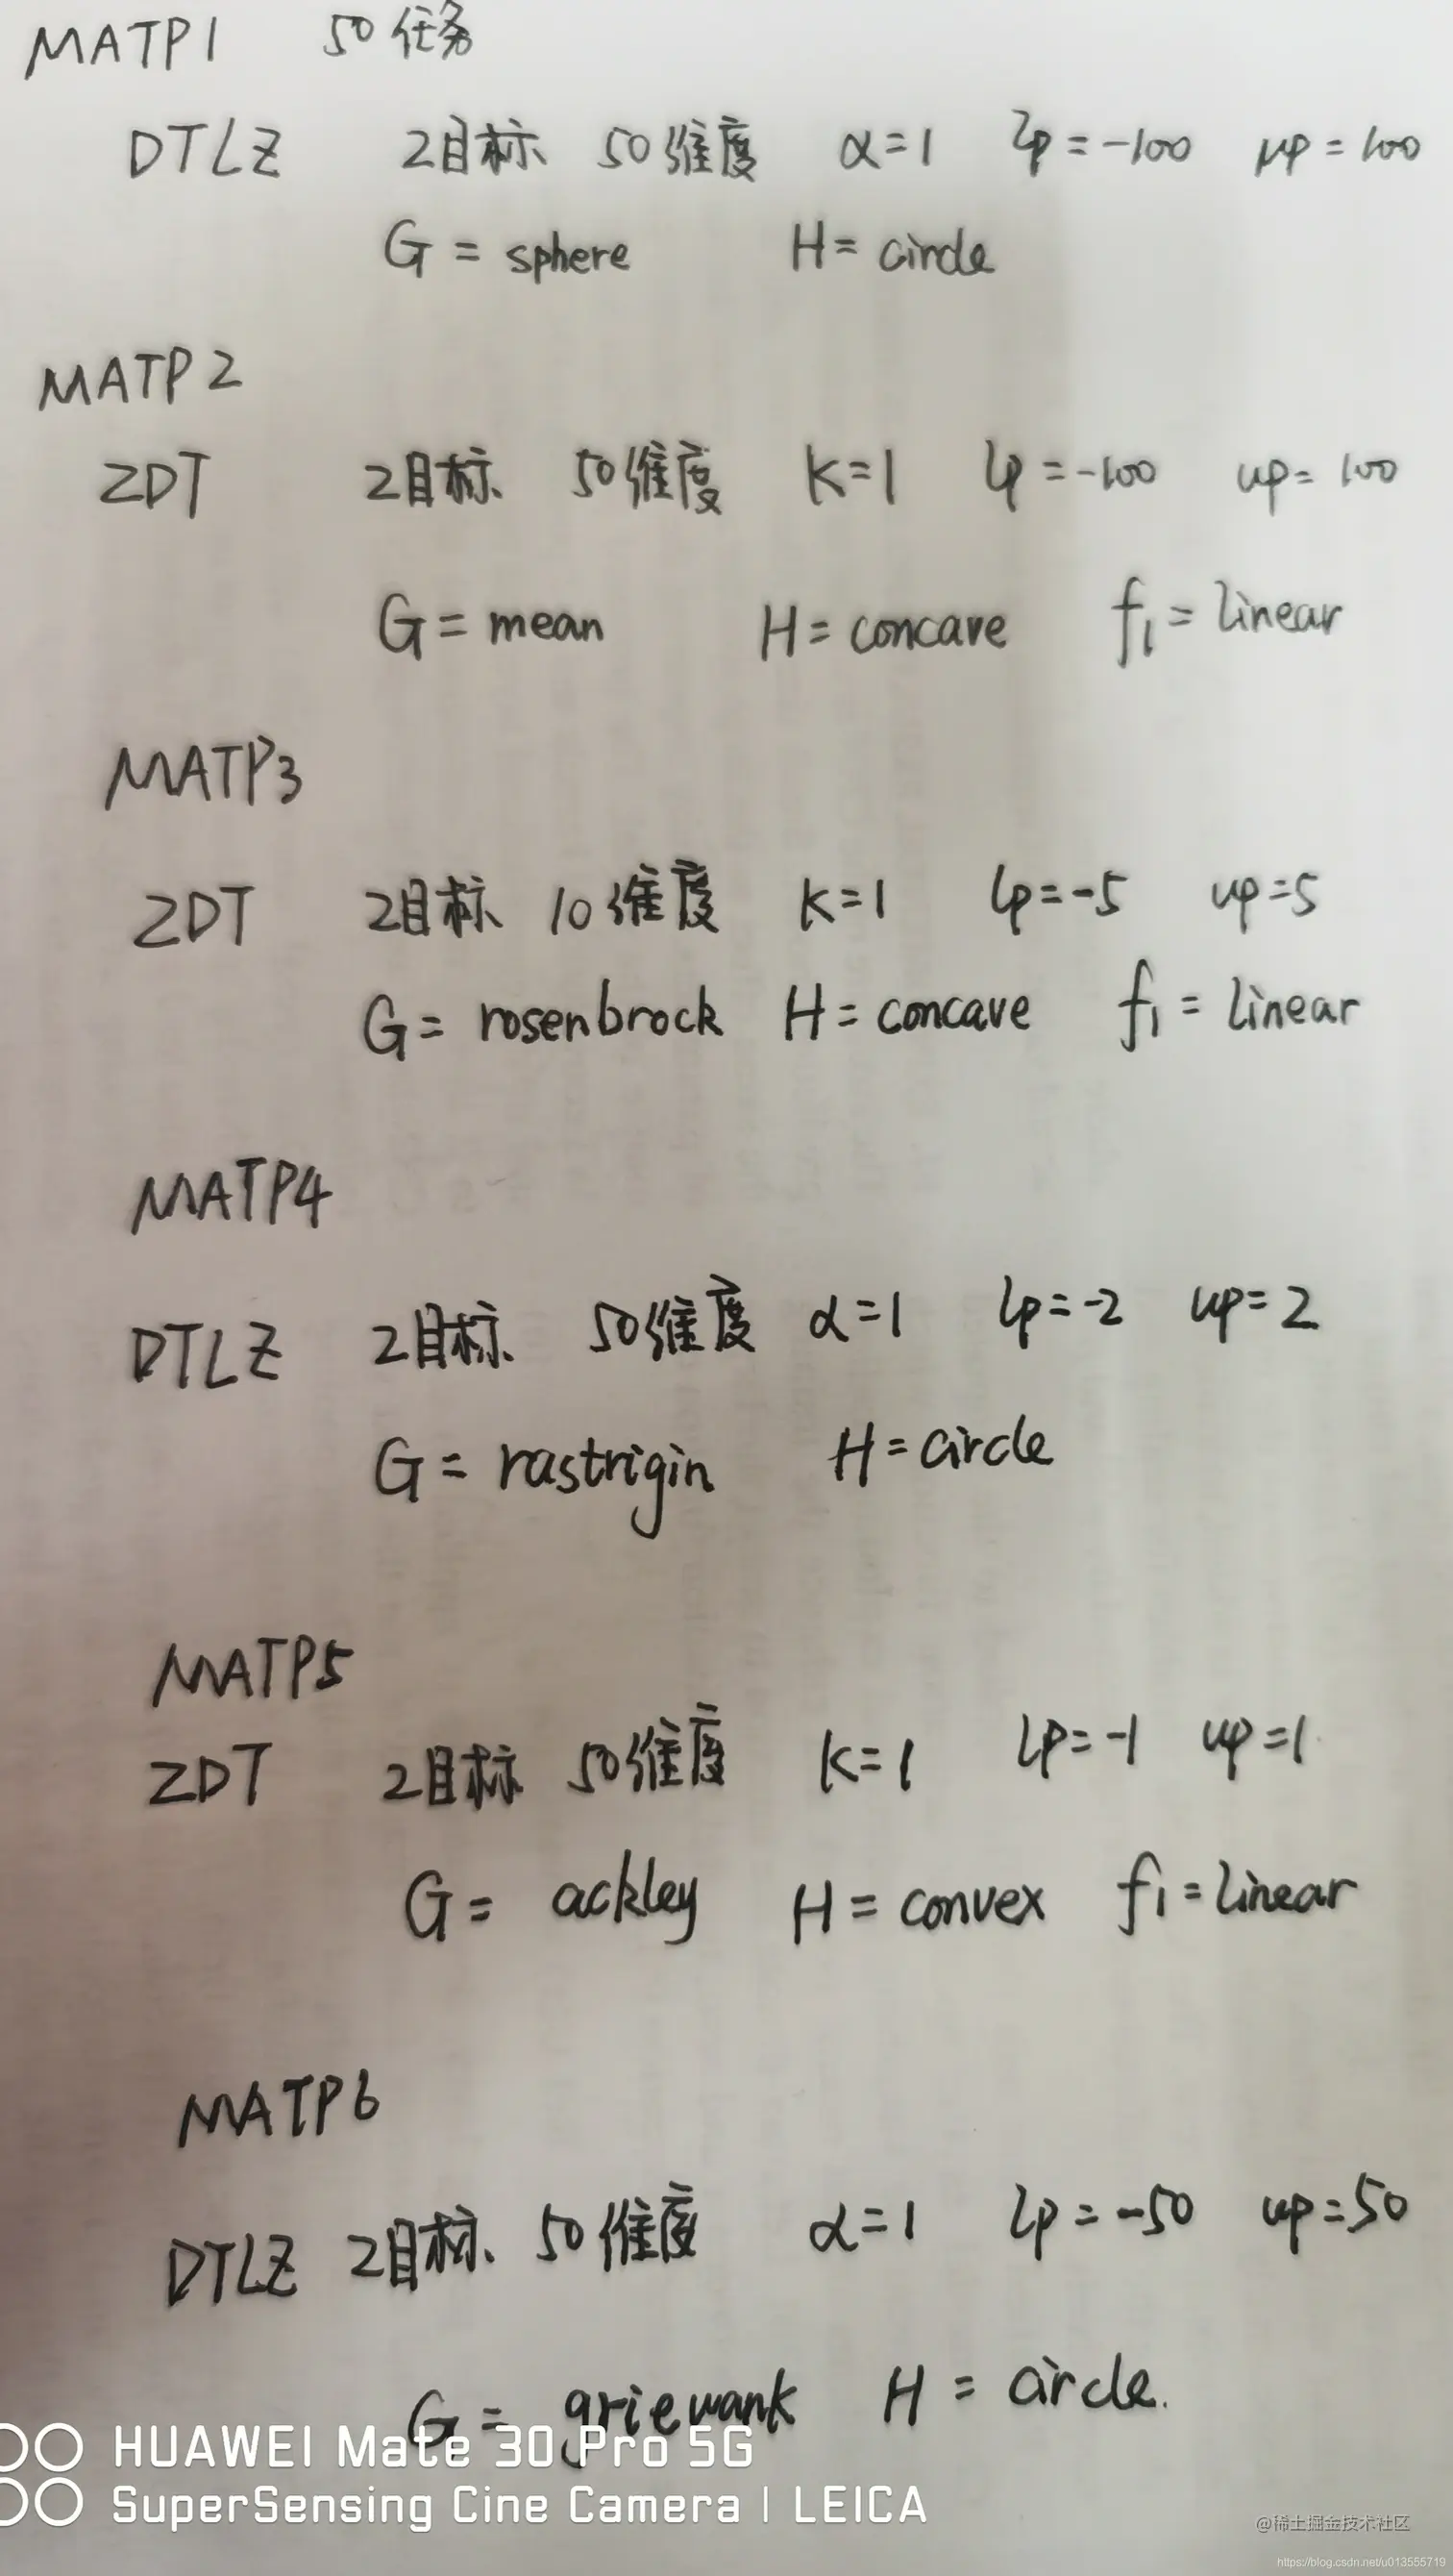 MATP1 50任务
DTLZ 2目标 50维度 α=1 lp=-100 up=100
G = sphere H= circle
MATP2
ZDT 2目标 50维度 K=1 lp=-100 up=100
G= mean H= concave f1= linear
MATP3
ZDT 2目标 10维度 K=1 lp=-5 up=5
G= rosenbrock H= concave f1= linear
MATP4
DTLZ 2目标 50维度 α=1 lp=-2 up=2
G= rastrigin H=circle
MATP5
ZDT 2目标 50维度 K=1 lp=-1 up=1
G= ackley H= convex f1=linear
MATP6
DTLZ 2目标 50维度 α=1 lp=-50 up=50
G= griewank H = circle.
HUAWEI Mate 30 Pro 5G
SuperSensing Cine Camera | LEICA
@稀土掘金技术社区
https://blog.csdn.net/u013555719